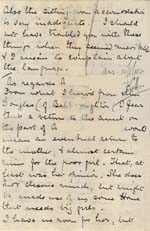 Also the sitting room accommodation
is very inadequate. I should
not have troubled you with these
things when they seemed most
& I mean to complain about
the language.
As regards A
From what I heard from
Douglas (of I fear
that a return to the aunt on
the part of A would
mean an eventual return to
the mother, & almost certain
ruin for the poor girl. That, at
least was her opinion. She does
not desire much, but might
be made use of in some Home
that needs big girls.
I have no room for her, but